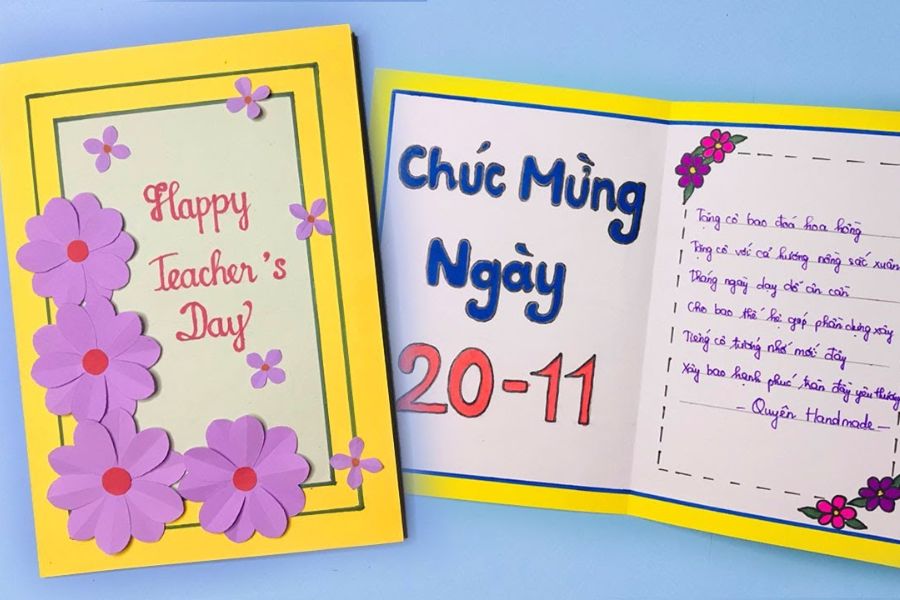 Happy
Teacher's
Day
Chúc Mừng
Ngày
20-11
Tặng cô bao đoá hoa hồng
Tặng cô với cả hương nồng sắc xuân
Tháng ngày dạy dỗ ân cần
Cho bao thế hệ góp phần dựng xây
Tiếng cô tưởng nhớ mới đây
Xây bao hạnh phúc, tràn đầy yêu thương
- Quyên Handmade -